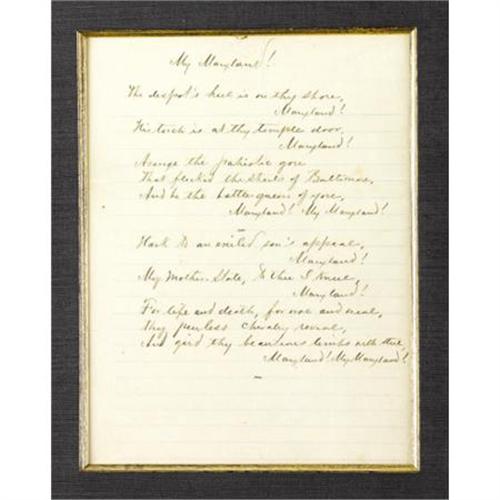 My Maryland!
The despot's heel is on thy shore,
Maryland!
His torch is at thy temple door,
Maryland!
Avenge the patriotic gore
That flecked the streets of Baltimore,
And be the battle queen of yore,
Maryland! My Maryland!
Hark to an exiled son's appeal,
Maryland!
My Mother State, to thee I kneel,
Maryland!
For life and death, for woe and weal,
thy peerless chivalry reveal,
And gird thy beauteous limbs with steel,
Maryland! My Maryland!